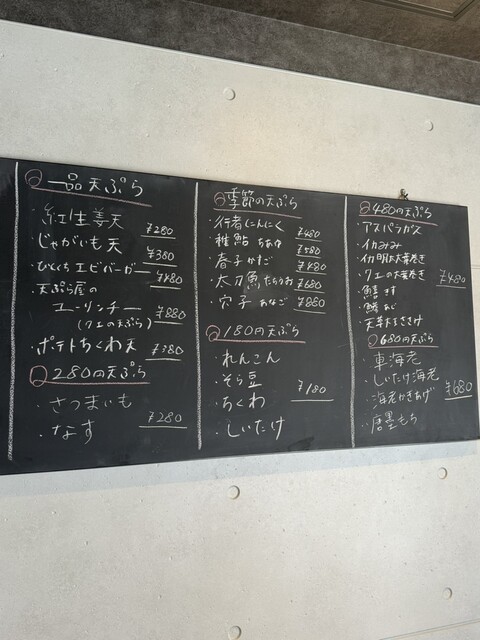 一品天ぷら
・紅生姜天 ¥280
・じゃがいも天 ¥380
・ひとくちエビバーガー ¥480
・天ぷら屋の
ユーリンチー
(クエの天ぷら) ¥880
・ポテトちくわ天 ¥380
280円天ぷら
・さつまいも
・なす ¥280
季節の天ぷら
・行者にんにく ¥480
・稚鮎 ちあゆ ¥580
・春子 かすご ¥480
・太刀魚 たちうお ¥680
・穴子 あなご ¥880
180円天ぷら
・れんこん
・そら豆
・ちくわ ¥180
・しいたけ
480円天ぷら
・アスパラガス
・イカみみ
・イカ明太大葉巻き
・クエの大葉巻き ¥480
・鱚 きす
・鯵 あじ
・天草大王ささけ
680円天ぷら
・車海老
・しいたけ海老
・海老かきあげ ¥680
・唐墨もち